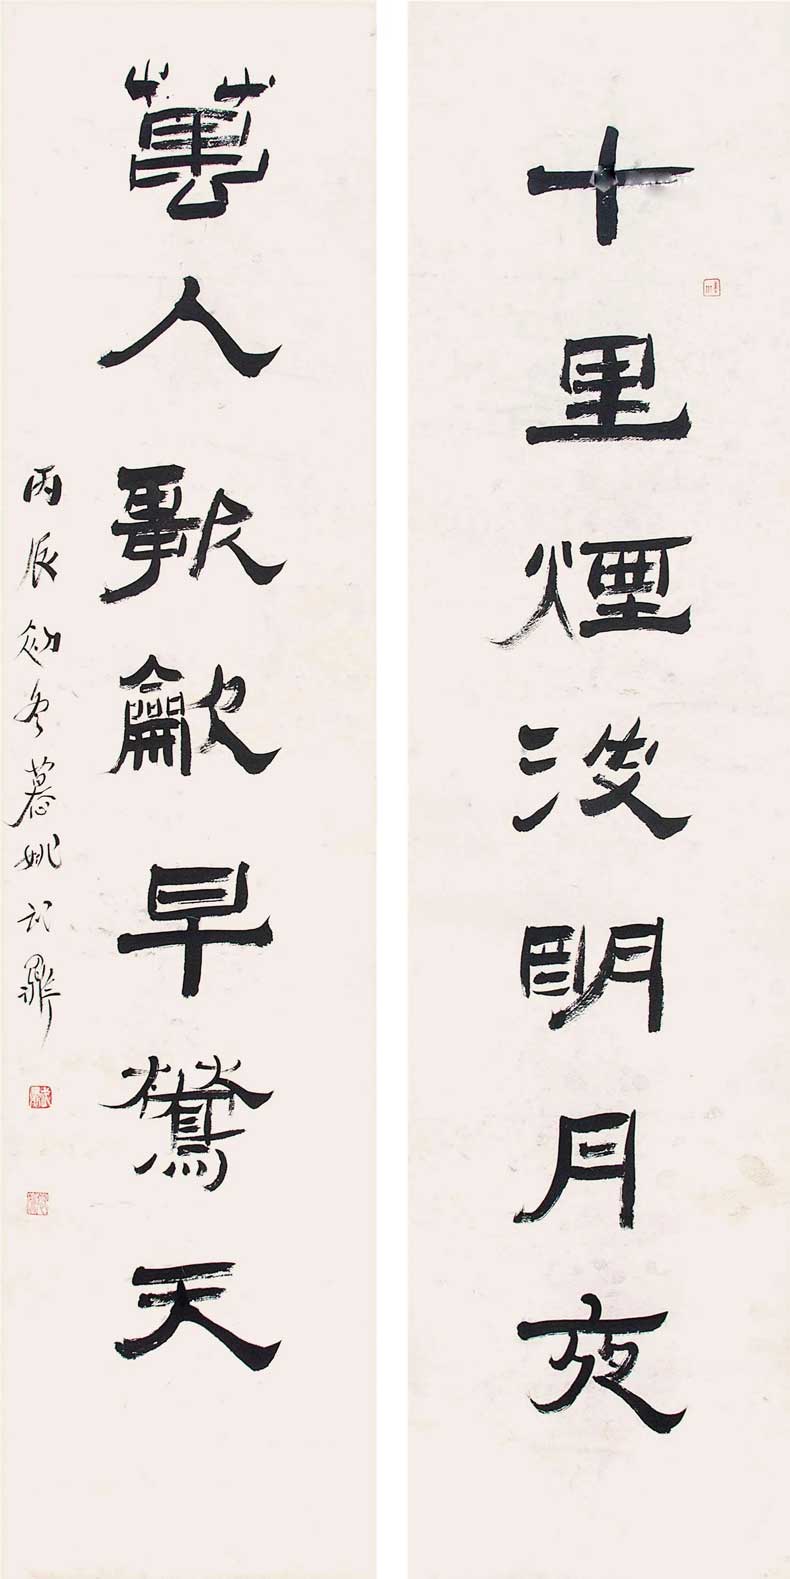 十里煙波明月夜
萬人歌龡早鶯天
丙辰初冬慕姚